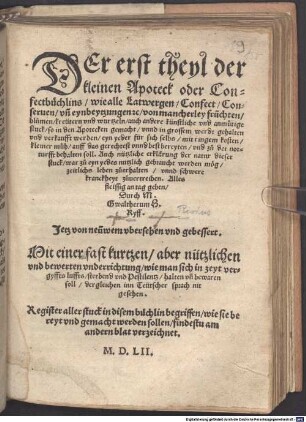 DEr erst theyl der
kleinen Apoteck oder Con-
fectbüchlins / wie alle Latwergen / Confect / Con-
seruen / vñ eynbeytzungen ꝛc / von mancherley früchten /
blůmen / kreütern vnd wurtzeln auch andere künstliche vnd
stuck / so in den Apotecken gemacht / vnd in grossem werdt gehalten
vnd verkaufft werden / eyn yeder für sich selbs / mit ringem kosten /
kleiner mühe / auff das gerechtest vnnd best bereyten / vnd zů der
notturfft behalten soll. Auch nützliche erklärung der natur dieser
stuck / war zů eyn yedes nutzlich gebraucht werden mög /
zeitlichs leben zůerhalten / vnnd schwere
kranckheyt zůuertreiben. Alles
fleissig an tag geben /
Durch M.
Gwaltherum H.
Ryff.
Jetz von neüwem vbersehen vnd gebessert.
Mit einer fast kurtzen / aber nützlichen
vnd bewerten vnderrichtung / wie man sich in zeyt ver-
gyffts luffts / sterbens vnd Pestilentz / halten vñ bewaren
soll / vergleichen inn Teütscher sprach nit
gesehen.
Register aller stuck in disem bůchlin begriffen / wie sie be
reyt vnd gemacht werden sollen / findestu am
andern blat verzeichnet.
M. D. LII.